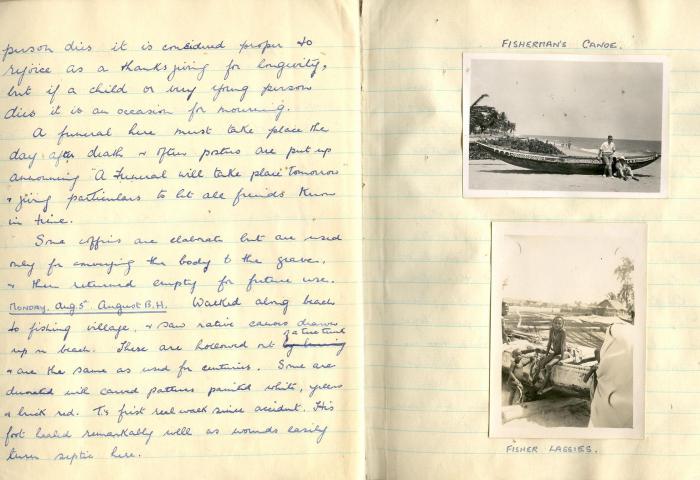 person dies it is considered proper to
rejoice as a thanksgiving for longevity,
but if a child or very young person
dies it is an occasion for mourning.
A funeral here must take place the
day after death & often posters are put up
announcing "A Funeral will take place" tomorrow
& giving particulars to let all friends know
in time.
Some coffins are elaborate but are used
only for conveying the body to the grave,
& then returned empty for future use.
MONDAY. Aug 5. August B.H. Walked along beach
to fishing village, & saw native canoes drawn
up on beach. These are hollowed out of a tree trunk by burning
& are the same as used for centuries. Some are
decorated with carved patterns painted white, green
& brick red. T's first real walk since accident. His
foot healed remarkably well as wounds easily
turn septic here.
FISHERMAN'S CANOE.
FISHER LASSIES.